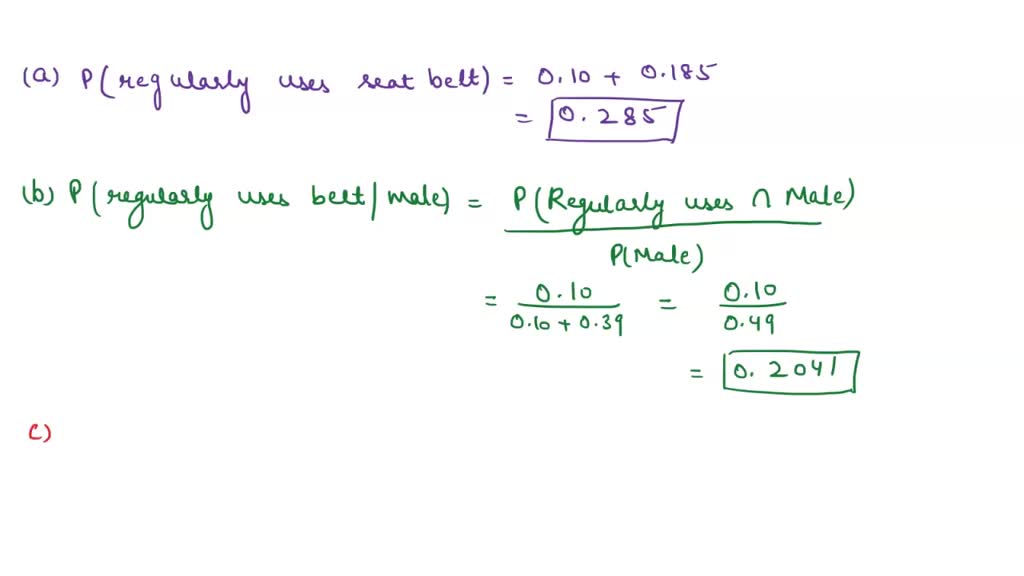 (a) P(regularly uses seat belt) = 0.10 + 0.185
= 0.285
(b) P(regularly uses belt/male) = P(Regularly uses ∩ Male)
P(Male)
= 0.10 = 0.10
0.10 + 0.39 0.49
= 0.2041
c)